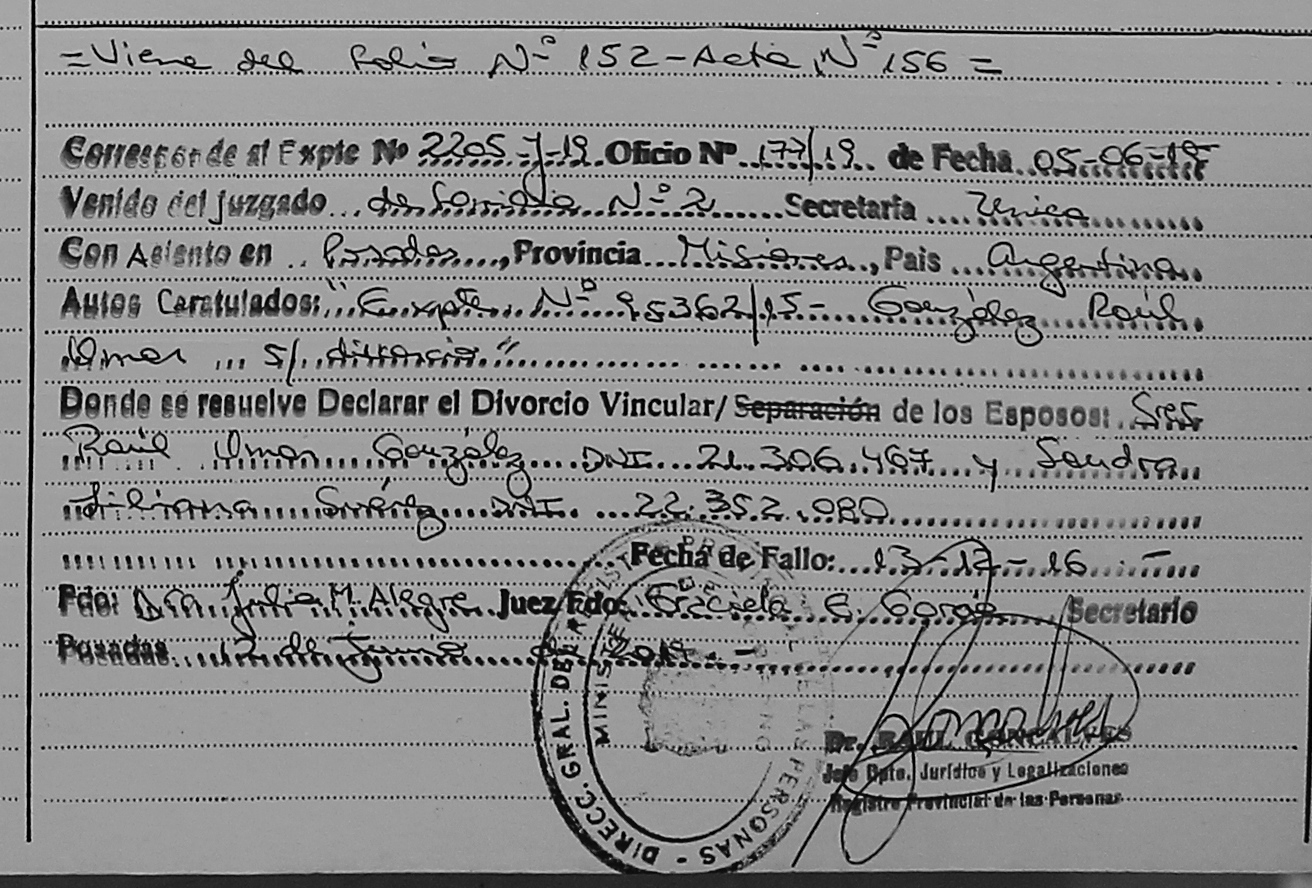 = Viene del Folio Nº 152 - Acta Nº 156 =
Corresponde al Expte Nº 2205-J-19 Oficio Nº 177/19 de Fecha 05-06-19
Venido del juzgado de Familia Nº 2 Secretaría Unica
Con Asiento en Posadas, Provincia Misiones, Pais Argentina
Autos Caratulados: "Expte Nº 95362/15 - González Raúl
Omar s/ divorcio"
Donde se resuelve Declarar el Divorcio Vincular/ Separación de los Esposos: Sres
Raúl Omar González DNI 21.306.467 y Sandra
Liliana Suárez DNI 22.352.080
Fecha de Fallo: 13-12-16 -
Fdo: Dra Julia M. Alegre Juez Fdo: Graciela E. Secretario
Posadas 12 de Junio de 2019. -
DIRECC. GRAL. DE PERSONAS
MINIS
Dr. RAUL
Jefe Dpto. Jurídico y Legalizaciones
Registro Provincial de las Personas